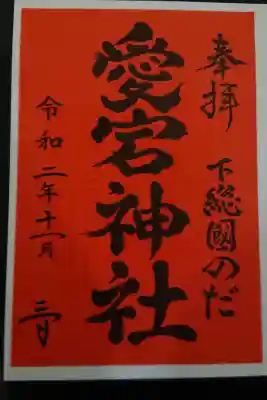 奉拝
下総國のだ
愛宕神社
令和二年十一月